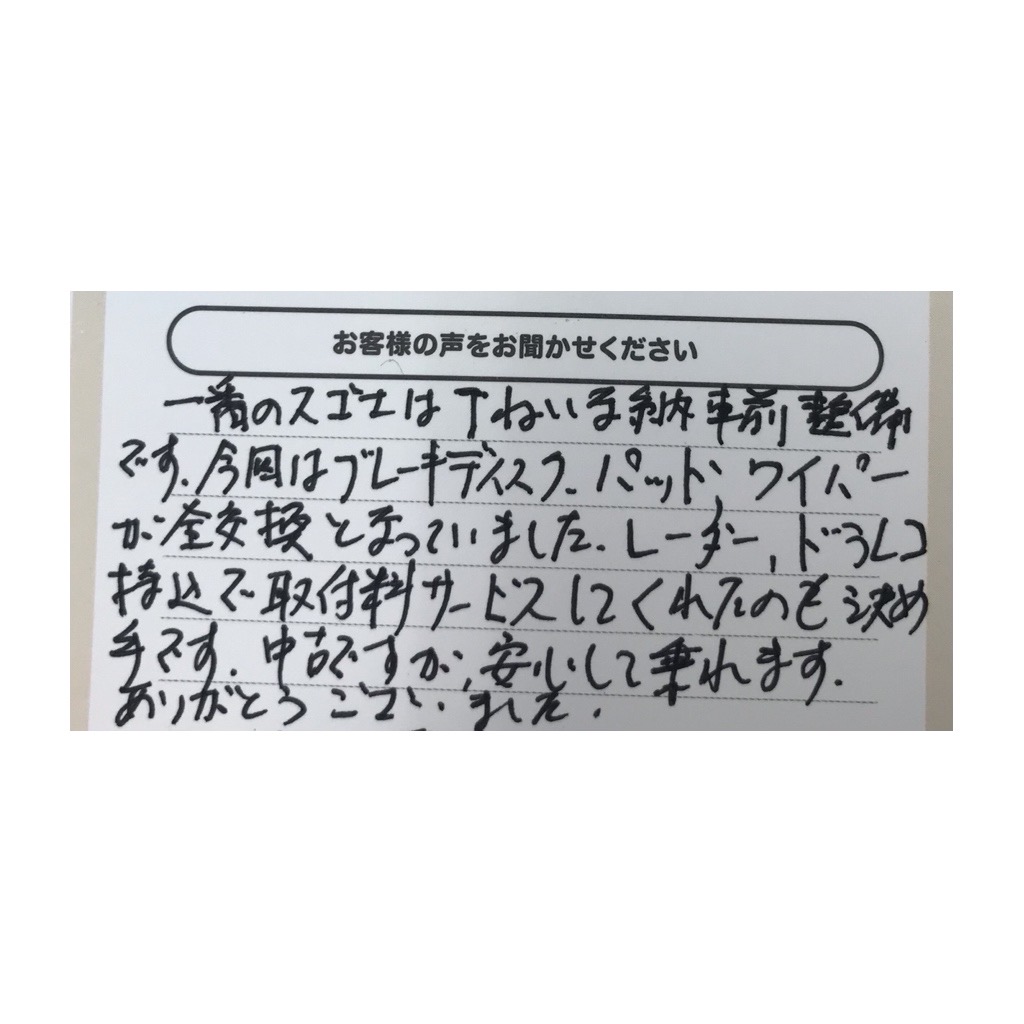 お客様の声をお聞かせください
一番のスゴサは丁ねいな納車前整備
です。今回はブレーキディスク、パッド、ワイパー
が全交換となっていました。レーダー、ドラレコ
持込で取付料サービスしてくれたのも決め
手です。中古ですが、安心して乗れます。
ありがとうございました。